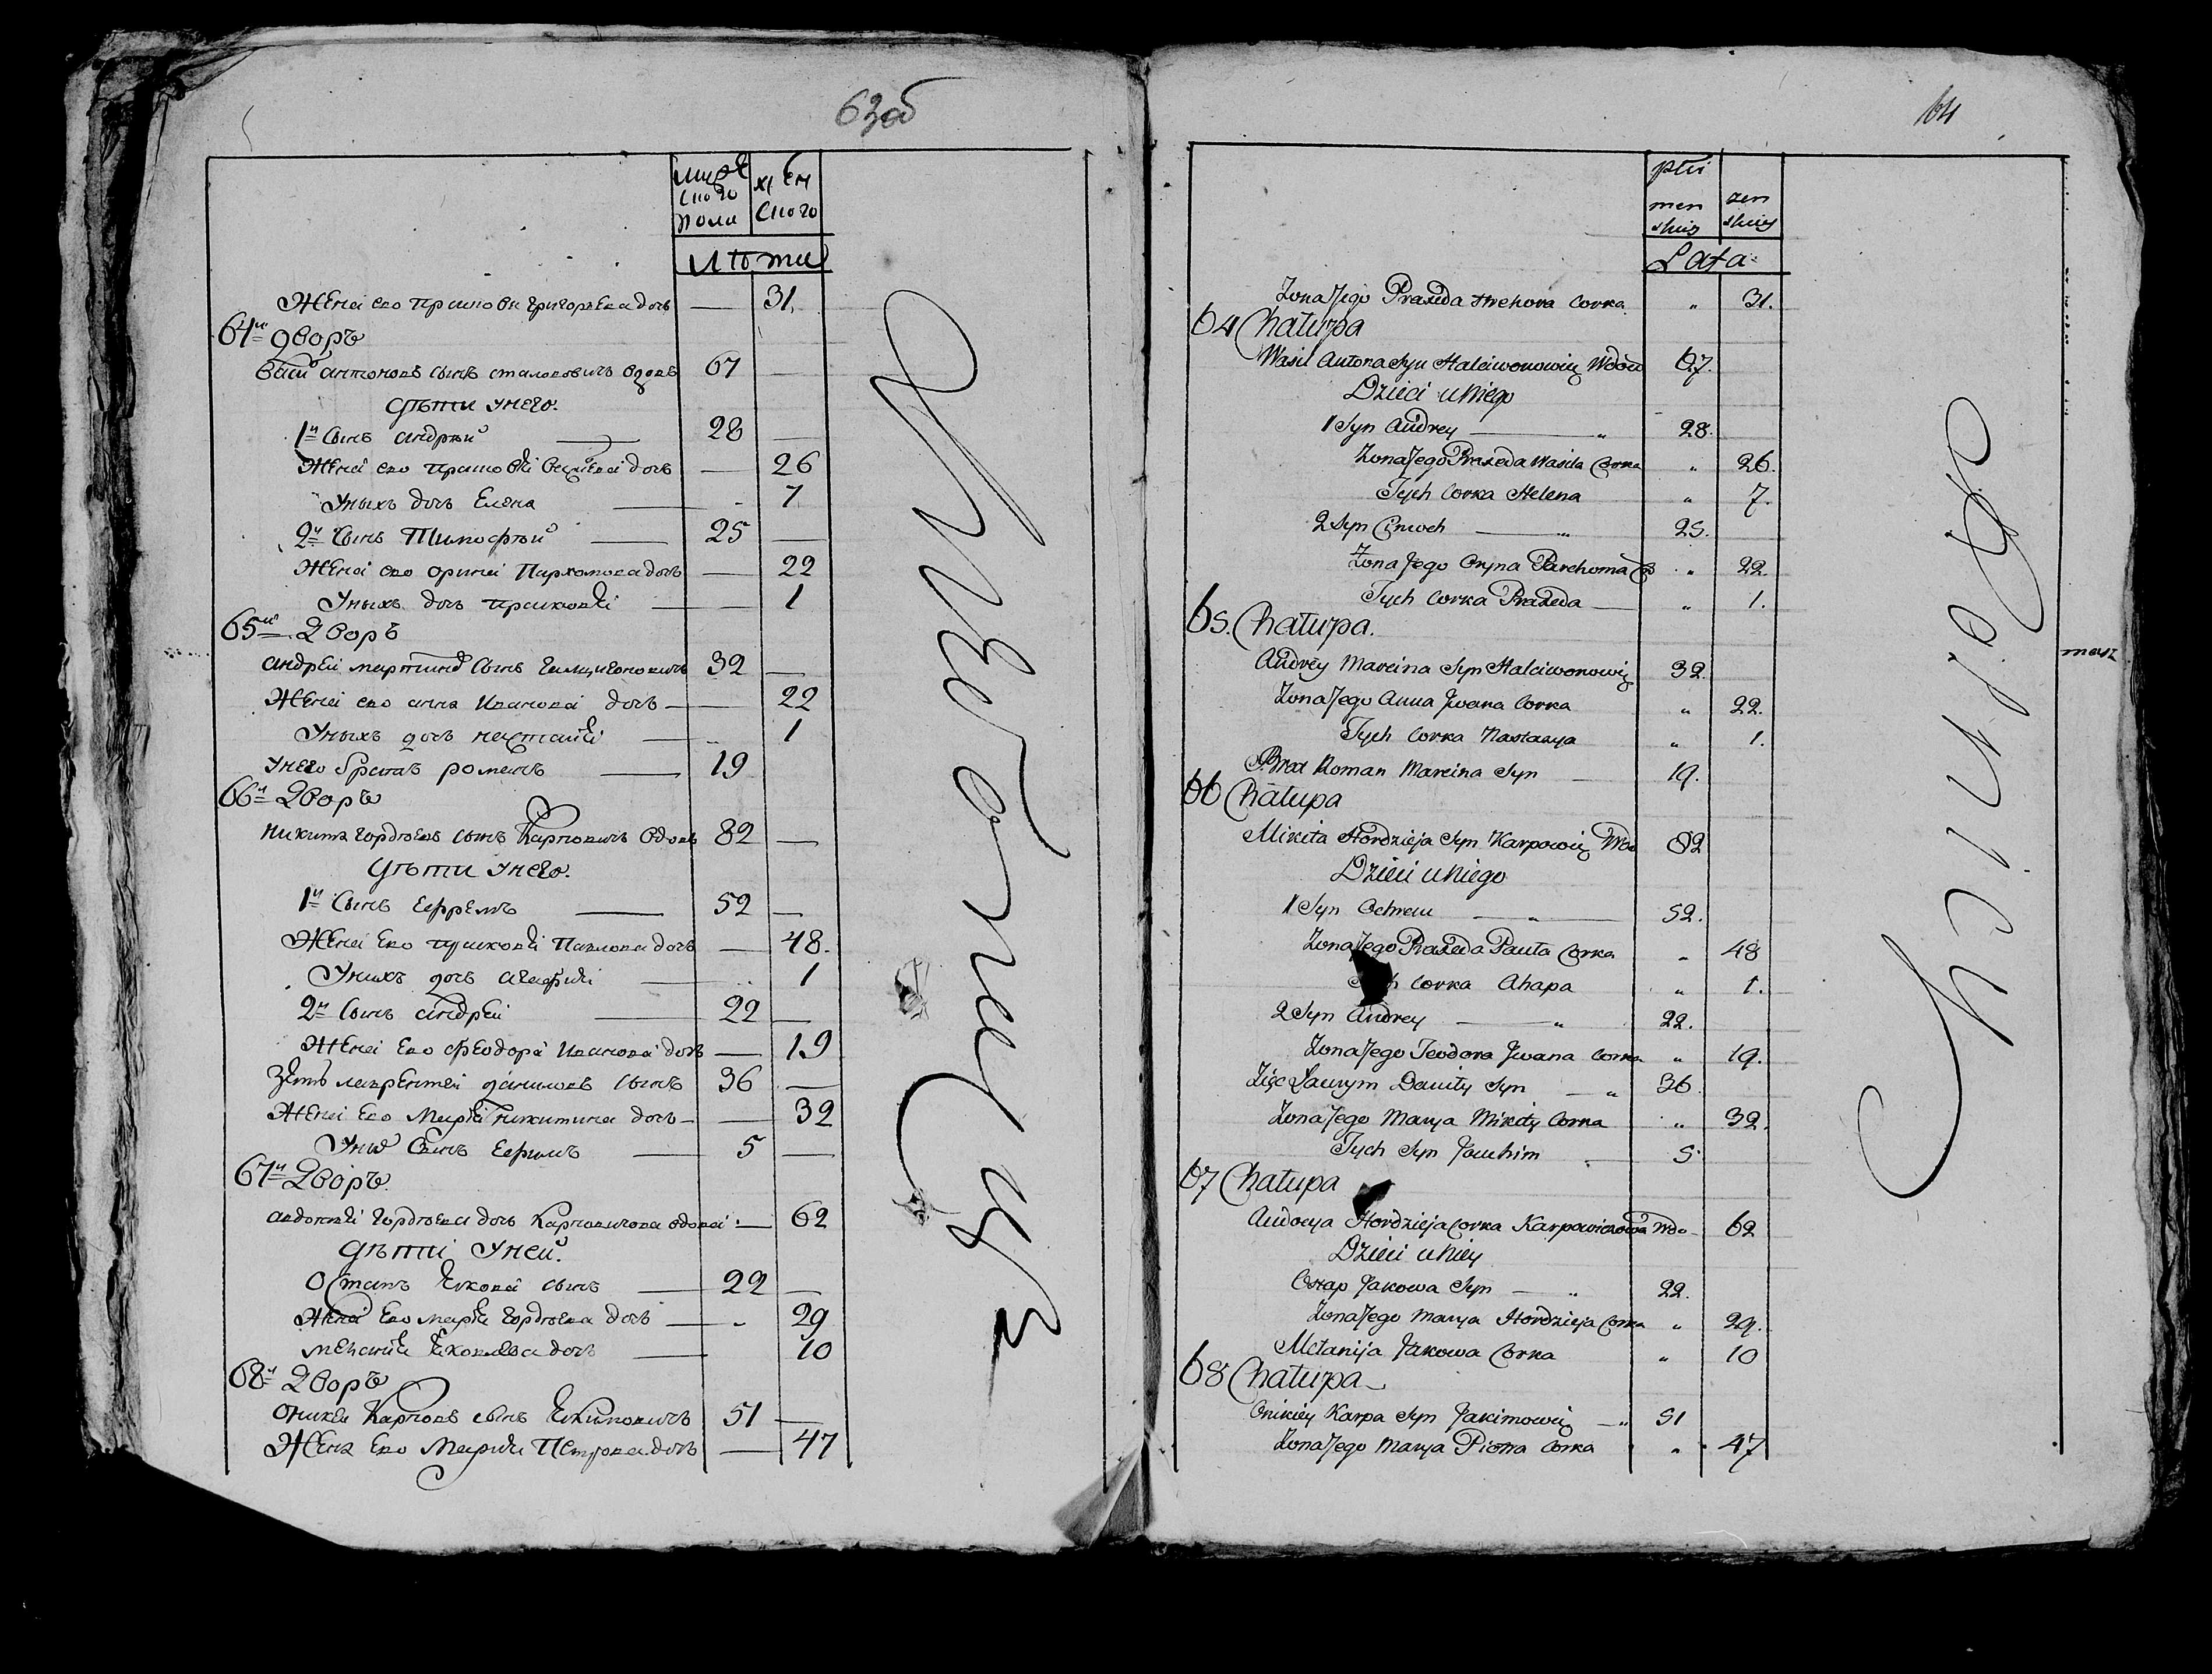 63об
мужескаго пола
женскаго
лѣты
Жена ево прасковя григорьева дочь — 31.
64й дворъ
васил антоновъ сынъ вдовъ 67 —
дѣти у него.
1й сынъ андрѣй — 28 —
Жена ево прасковя василева дочь — 26
У ныхъ дочь Елена — 7
2й сынъ Тимофѣй — 25 —
Жена ево орина Пархомова дочь — 22
У ныхъ дочь прасковя — 1
65й дворъ
андрей мартинов сынъ галцивоновичъ 32 —
Жена ево анна Иванова дочь — 22
У ныхъ дочь настася — 1
У него братъ романъ — 19
66й дворъ
никита гордѣевъ сынъ Карповичъ вдовъ 82 —
дѣти у него.
1й сынъ Ефремъ — 52 —
Жена Ево прасковя Павлова дочь — 48.
У нихъ дочь агафия — 1
2й сынъ андрей — 22 —
Жена Ево феодора Иванова дочь — 19
зять лаврентей даниловъ сынъ 36 —
Жена Ево Маря никитина дочь — 32
У них сынъ Ефимъ — 5 —
67й дворъ
авдотя гордѣева дочь Карповичова вдова — 62
дѣти у ней.
Остапъ Якова сынъ — 22 —
Жена Ево маря Гордѣева дочь — 29
Яковлева дочь — 10
68й дворъ
оникей Карповъ сынъ Якимовичъ 51 —
Жена Ево Мария Петрова дочь — 47
дисятницъ
64
płci
menskiey
zenskiey
Lata
Zona Jego Praxeda Hrehora Corka " 31.
64 Chałupa
Wasil Antona Syn Halciwonowicz Wdow 67.
Dzieci u Niego
1 Syn Andrey — " 28.
Zona Jego Praxeda Wasila Corka " 26.
Tych Corka Helena " 7.
2 Syn Cimoch — " 25.
Zona Jego Oryna Parchoma Co " 22.
Tych Corka Praxeda — " 1.
65. Chałupa.
Andrey Marcina Syn Halciwonowicz 32.
Zona Jego Anna Jwana Corka " 22.
Tych Corka Nastazya " 1.
Brat Roman Marcina Syn — 19.
66 Chałupa
Mikita Hordzieja Syn Karpowicz Wdo 82
Dzieci u Niego
1 Syn Ochrem — " — 52.
Zona Jego Praxeda Pauła Corka " 48
Corka Ahapa " 1.
2 Syn Andrey — " 22.
Zona Jego Teodora Jwana Corka " 19.
Zięc Ławrym Daniły Syn — " 36.
Zona Jego Marya Mikity Corka " 32.
Tych Syn Jauchim 5
67 Chałupa
Audocya Hordzieja Corka Karpowiczowa Wdo 62
Dzieci u Niey
Ostap Jakowa Syn — " 22.
Zona Jego Marya Hordzieja Corka " 29.
Mełanija Jakowa Corka " 10
68 Chałupa
Onikiey Karpa Syn Jakimowicz — " 51
Zona Jego Marya Piotra Corka " 47